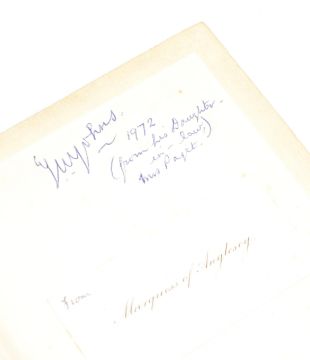 G.W. Johns.
1972
(from his Daughter-
in-law,)
Mrs Paget.
From
Marquess of Anglesey